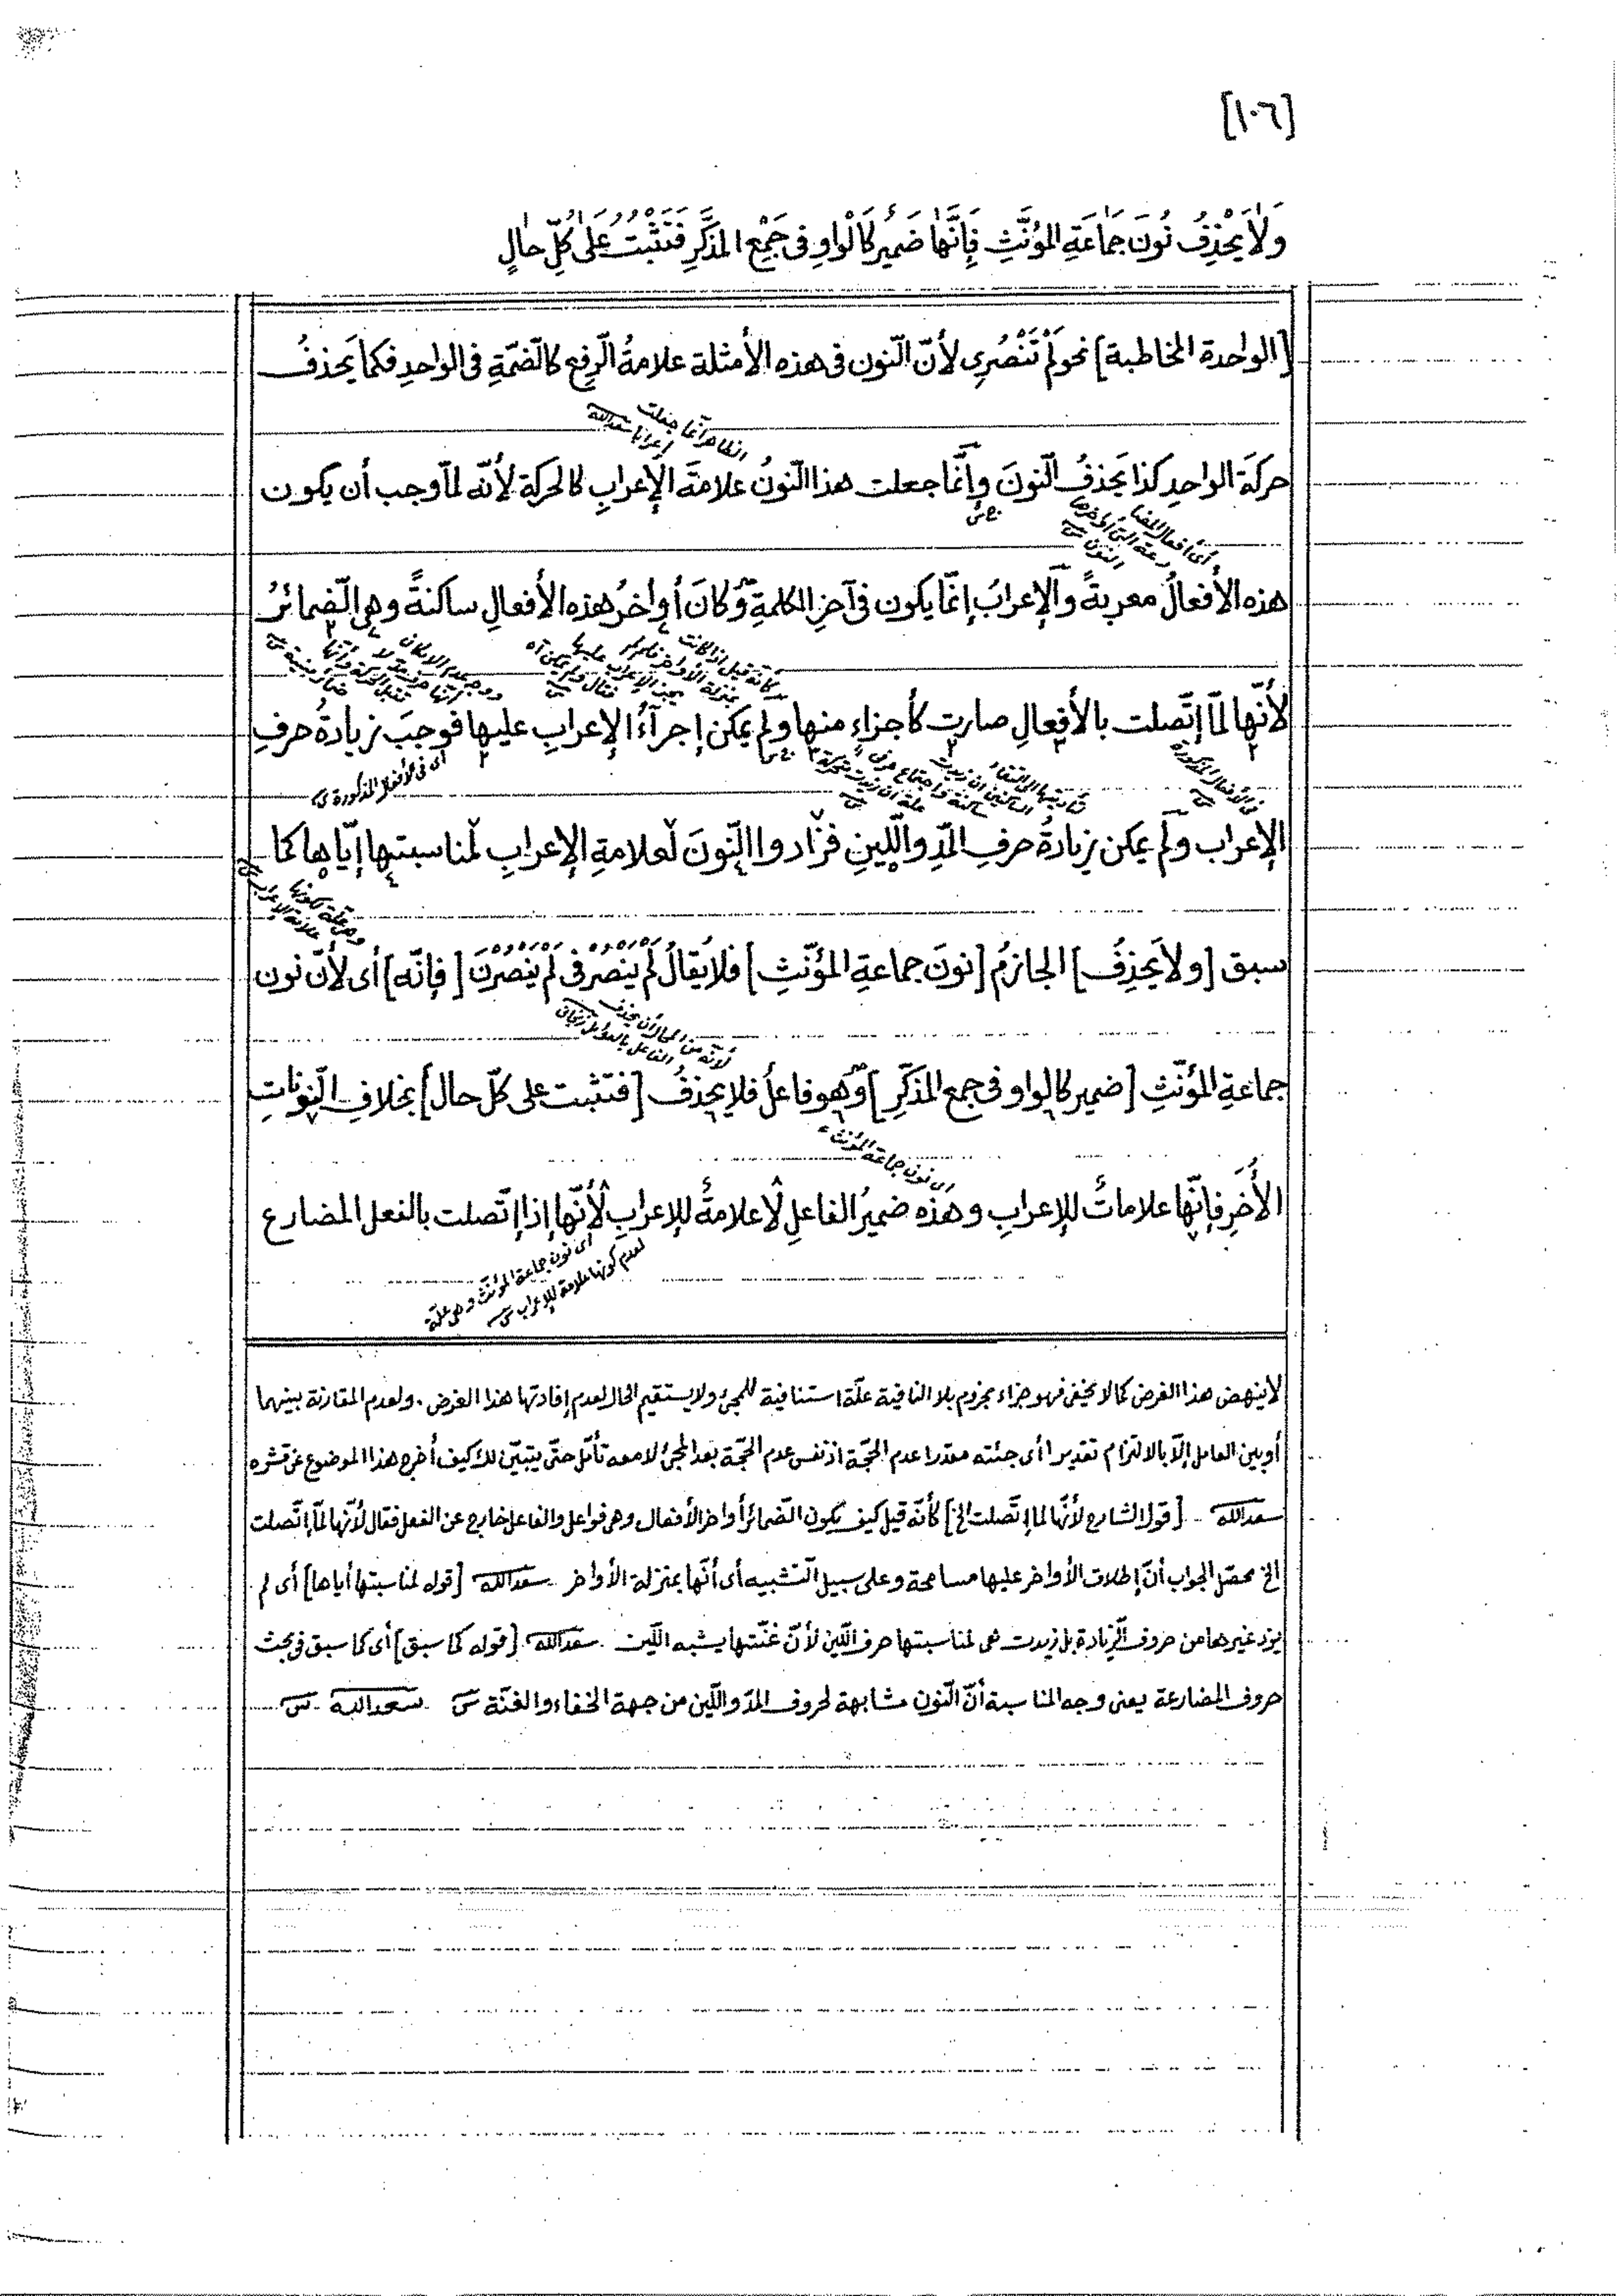 [١٠٦]
وَلَا يَحْذِفُ نُونَ جَمَاعَةِ المُؤَنَّثِ فَإِنَّهَا ضَمِيرٌ كَالْوَاوِ فِي جَمْعِ المُذَكَّرِ فَتَثْبُتُ عَلَى كُلِّ حَالٍ
[الواحدة المخاطبة] نحو لَمْ تَنْصُرِي لأنّ النّون فى هذه الأمثلة علامةُ الرّفع كالضّمّةِ فى الواحدِ فكما يَحذفُ
الظاهر انّما جعلت
إعرابا سعدالله
حركَةَ الواحدِ كذا يَحذفُ النّونَ وإنّما جعلت هذا النّونُ علامةَ الإعرابِ كالحركة لأنّه لمّا وجب أن يكون
هذه الأفعالُ معربةً والإعرابُ إنّما يكون فى آخرِ الكلمةِ وكانَ أواخرُ هذه الأفعالِ ساكنةً وهى الضّمائرُ
لأنّها لمّا إتّصلت بالأفعالِ صارت كأجزاءٍ منها ولم يمكن إجرآءُ الإعرابِ عليها فوجبَ زيادةُ حرفِ
اى فى الأفعال المذكورة
من الأفعال المذكورة
الإعراب ولم يمكن زيادةُ حرفِ المدِّ واللّينِ فزادوا النّونَ لعلامةِ الإعرابِ لمناسبتها إيّاها كما
سبق [ولا يَحذِفُ] الجازمُ [نونَ جماعةِ المؤنّثِ] فلا يُقالُ لَمْ يَنْصُرْ فى لَمْ يَنْصُرْنَ [فإنّه] أى لأنّ نون
لأنّه من المحال أن يحذف
جماعةِ المؤنّثِ [ضمير كالواو فى جمع المذكّرِ] وهو فاعلٌ فلا يحذفُ [فتثبت على كلّ حال] بخلافِ النّوناتِ
اى نون جماعة المؤنث
الأُخَرِ فإنّها علاماتٌ للإعرابِ وهذه ضميرُ الفاعلِ لا علامةٌ للإعرابِ لأنّها إذا إتّصلت بالفعل المضارع
اى نون جماعة المؤنّث وهى علّة
لعدم كونها علامة للإعراب
لا ينهض هذا الغرض كما لا يخفى فهو جزاء مجزوم بلا النافية علّة استنافية للمجئ ولا يستقيم الحال لعدم إفادتها هذا الغرض. ولعدم المقارنة بينهما
أو بين العامل إلّا بالالتزام تقديرا أى جئته مقدرا عدم الحجّة اذ نفس عدم الحجّة بعد المجئ لا معه تأمّل حتّى يتبيّن لك كيف أخرج هذا الموضوع عن قشره
سعدالله [قول الشارح لأنّها لما إتّصلت الخ] كأنّه قيل كيف يكون الضّمائر أواخر الأفعال وهى فواعل والفاعل خارج عن الفعل فقال لأنّها لمّا إتّصلت
الخ محصّل الجواب أنّ إطلاق الأواخر عليها مسامحة وعلى سبيل التّشبيه أى أنّها بمنزلة الأواخر سعدالله [قوله لمناسبتها أياها] أى لم
يزد غيرها من حروف الزّيادة بل زيدت هى لمناسبتها حرف اللّين لأنّ غنّتها يشبه اللّين سعدالله [قوله كما سبق] أى كما سبق فى بحث
حروف المضارعة يعنى وجه المناسبة أنّ النّون مشابهة لحروف المدّ واللّين من جهة الخفاء والغنّة س سعدالله س